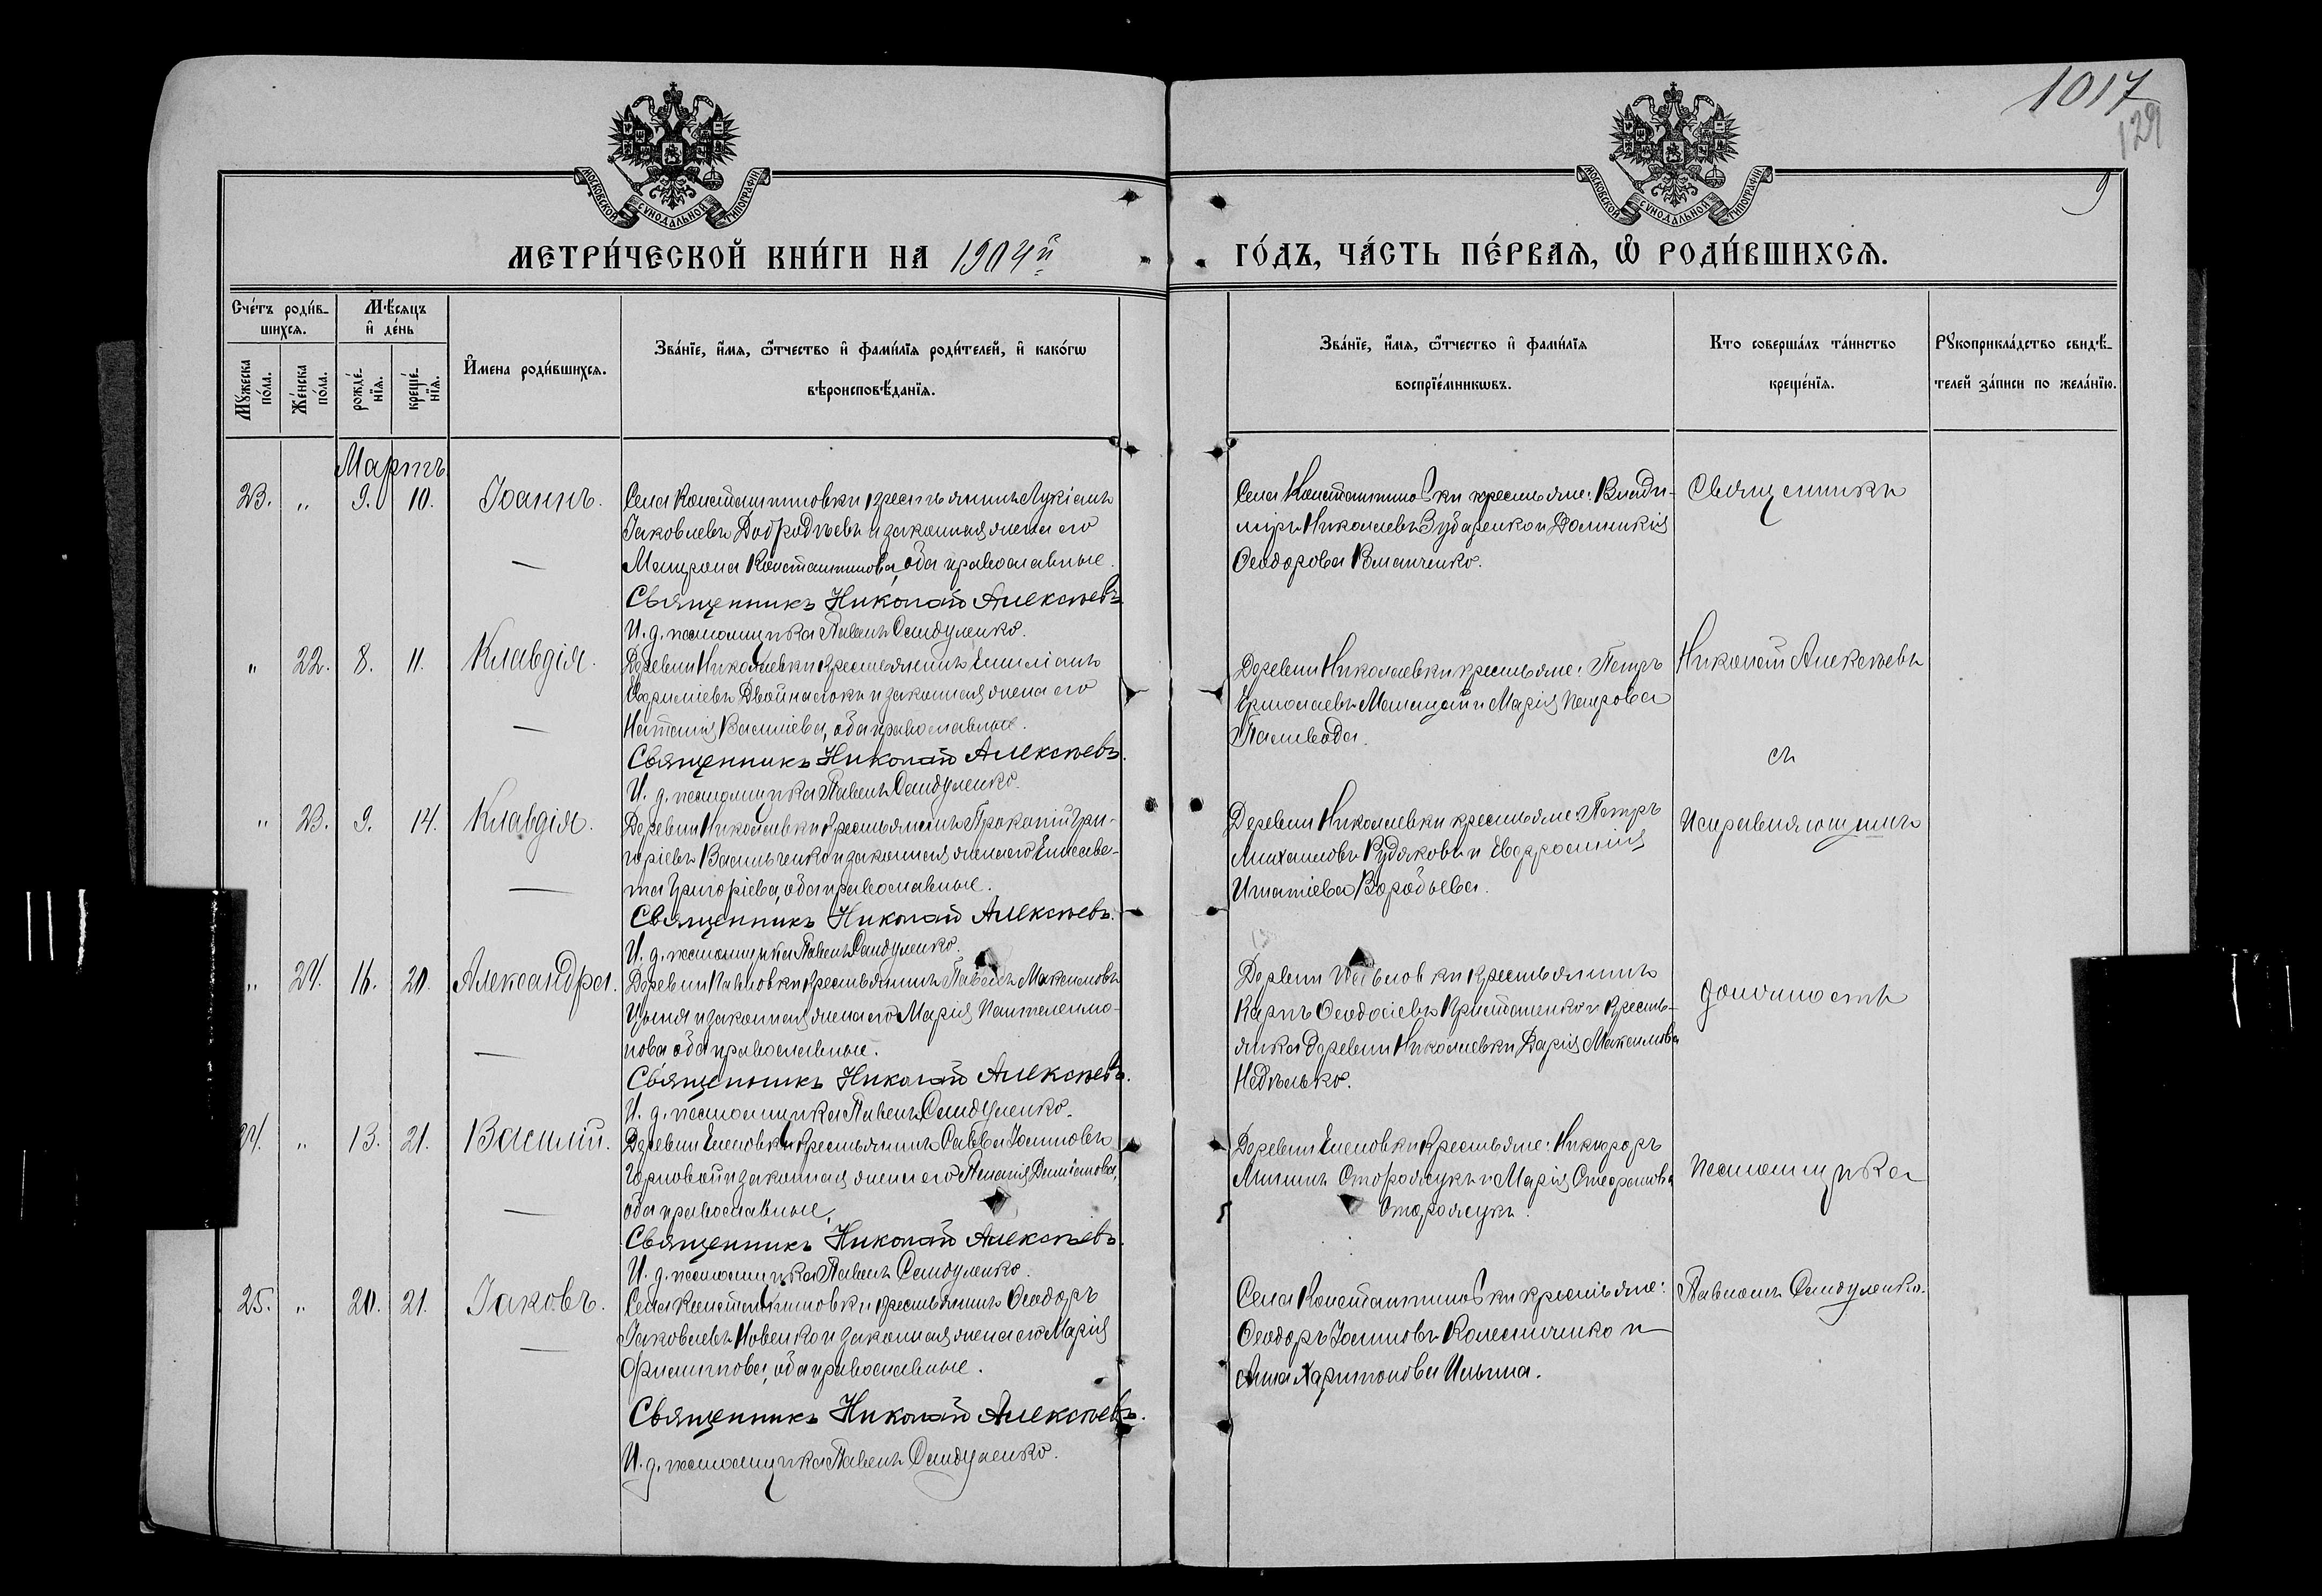 1017
129
9
МОСКОВСКОЙ СѴНОДАЛЬНОЙ ТИПОГРАФІИ
МОСКОВСКОЙ СѴНОДАЛЬНОЙ ТИПОГРАФІИ
МЕТРИ́ЧЕСКОЙ КНИ́ГИ НА 1904й
ГО́ДЪ, ЧА́СТЬ ПЕ́РВАЯ, Ѡ҆ РОДИ́ВШИХСЯ.
Сче́тъ роди́вшихся.
Мꙋ́жеска по́ла.
Же́нска по́ла.
Мѣ́сяцъ и҆ де́нь
рожде́нїя.
креще́нїя.
И҆́мена роди́вшихся.
Зва́нїе, и҆́мя, ѻ҆́тчество и҆ фами́лїя роди́телей, и҆ како́гѡ
вѣроисповѣ́данїя.
Зва́нїе, и҆́мя, ѻ҆́тчество и҆ фами́лїя
воспрїе́мникѡвъ.
Кто соверша́лъ та́инство
креще́нїя.
Рꙋкоприкла́дство свидѣ́-
телей за́писи по жела́нїю.
Мартъ
23. „ 9. 10. Іоаннъ.
Села Константиновки крестьянинъ Лукіанъ
Іаковлевъ Добродѣевъ и законная жена его
Матрона Константинова, оба православные.
Священникъ Николай Алексѣевъ.
И. д. псаломщика Павелъ Сандуленко.
Села Константиновки крестьяне: Влади-
міръ Николаевъ Зубаренко и Домникія
Ѳеодорова Коваленко.
Священникъ
„ 22. 8. 11. Клавдія.
Деревни Николаевки крестьянинъ Емиліанъ
Двойнасокъ и законная жена его
Наталія Василіева, оба православные.
Священникъ Николай Алексѣевъ.
И. д. псаломщика Павелъ Сандуленко.
Деревни Николаевки крестьяне: Петръ
Ермолаевъ и Марія Петрова
Паливода.
Николай Алексѣевъ
съ
„ 23. 9. 14. Клавдія.
Деревни Николаевки крестьянинъ Прокопій Гри-
горіевъ Васильченко и законная жена его Елисаве-
та Григоріева, оба православные.
Священникъ Николай Алексѣевъ.
И. д. псаломщика Павелъ Сандуленко.
Деревни Николаевки крестьяне: Петръ
Михаиловъ Рудяковъ и Евфросинія
Игнатіева Воробьева.
Исправляющимъ
„ 24. 16. 20. Александра.
Деревни Павловки крестьянинъ Павелъ Максимовъ
и законная жена его Марія Пантелеимо-
нова, оба православные.
Священникъ Николай Алексѣевъ.
И. д. псаломщика Павелъ Сандуленко.
Деревни Павловки крестьянинъ
Карпъ Ѳеодосіевъ и кресть-
янка деревни Николаевки Дарія Максимова
Недѣлько.
должность
24. „ 13. 21. Василій.
Деревни Еленовки крестьянинъ Савва Іоанновъ
и законная жена его Пелагія Даміанова,
оба православные.
Священникъ Николай Алексѣевъ.
И. д. псаломщика Павелъ Сандуленко.
Деревни Еленовки крестьяне: Никифоръ
Мининъ Сторожукъ и Марія Стефанова
Сторожукъ.
псаломщика
25. „ 20. 21. Іаковъ.
Села Константиновки крестьянинъ Ѳеодоръ
Іаковлевъ Новенко и законная жена его Марія
оба православные.
Священникъ Николай Алексѣевъ.
И. д. псаломщика Павелъ Сандуленко.
Села Константиновки крестьяне:
Ѳеодоръ Іоанновъ Колесниченко и
Анна Харитонова Ильина.
Павломъ Сандуленко.